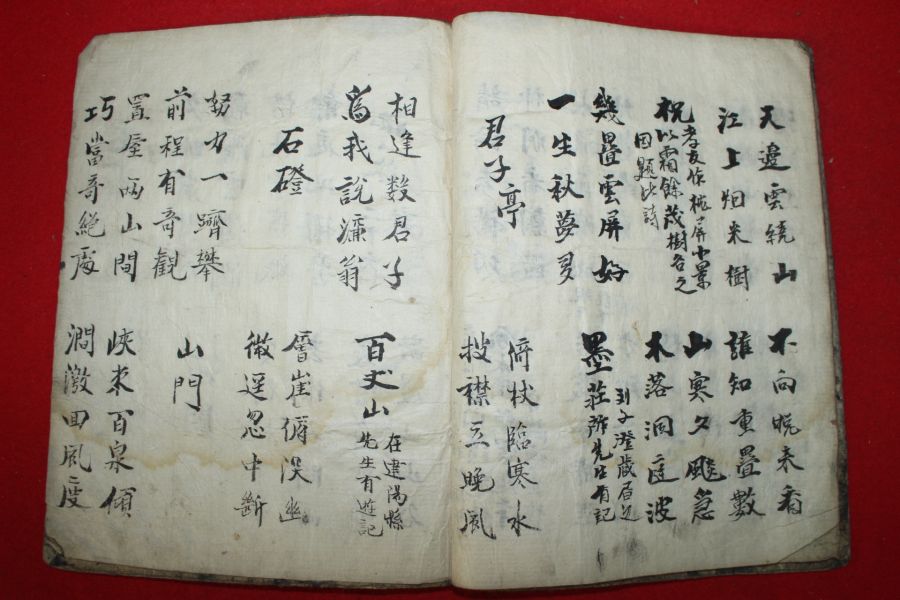 天邊雲繞山
江上烟米樹
不向晩來看
誰知重疊數
祝孝友作枕屛小景
以霜餘茂樹名之
因題此詩
山寒夕飈急
木落洞庭波
幾疊雲屛好
一生秋夢多
墨莊
君子亭
倚杖臨寒水
披襟立晚風
相逢數君子
爲我說濂翁
百丈山
在建陽縣
先生有遊記
石磴
層崖俯深幽
微逕忽中斷
努力一躋攀
前程有奇觀
山門
置屋兩山間
巧當奇絶處
峽束百泉傾
澗激回風度